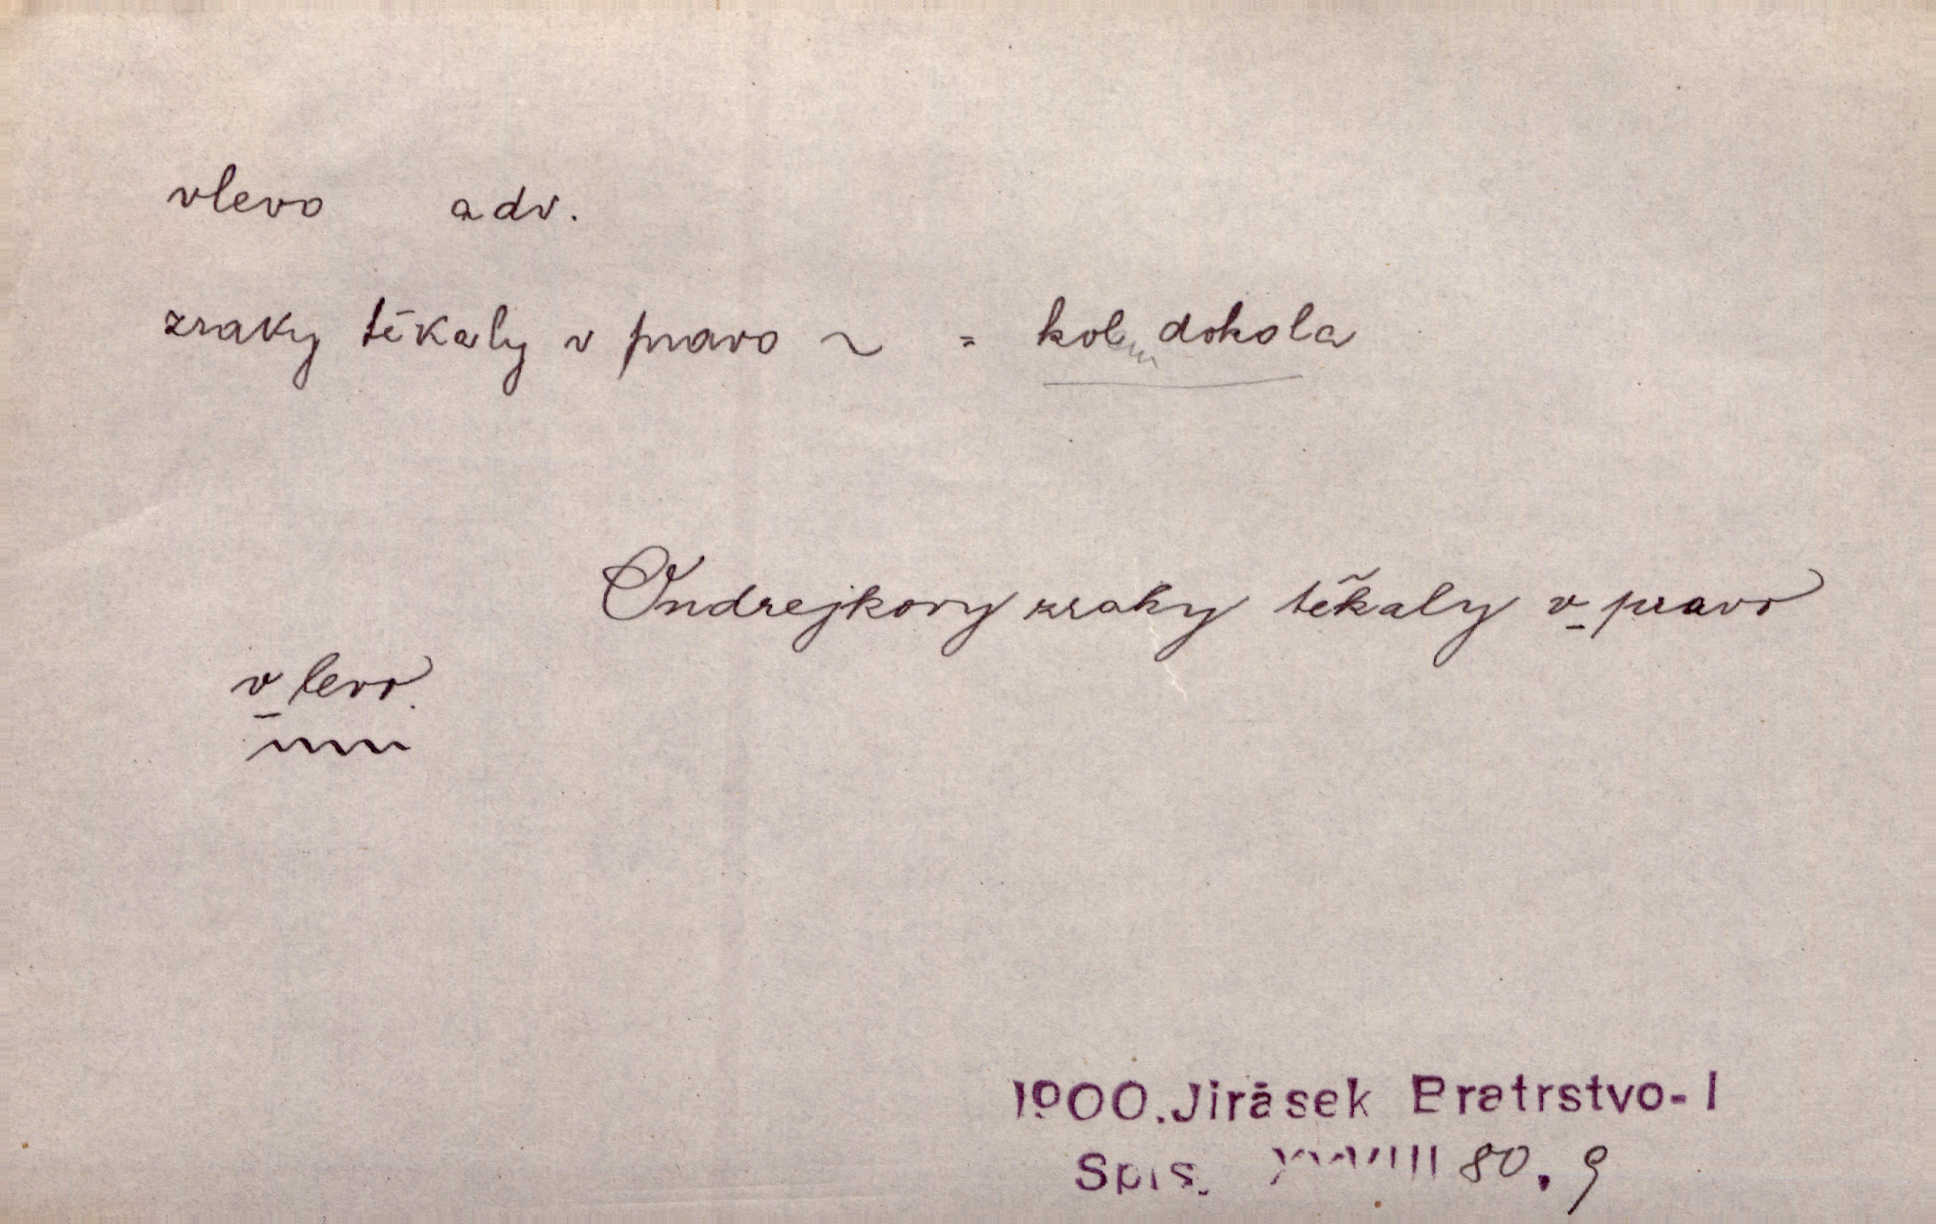 vlevo adv.
zraky těkaly v pravo ~ = kolem dokola
Ondrejkovy zraky těkaly v pravo
v levo.
1900. Jirásek Bratrstvo-I
Spis. XXVIII 80, 9